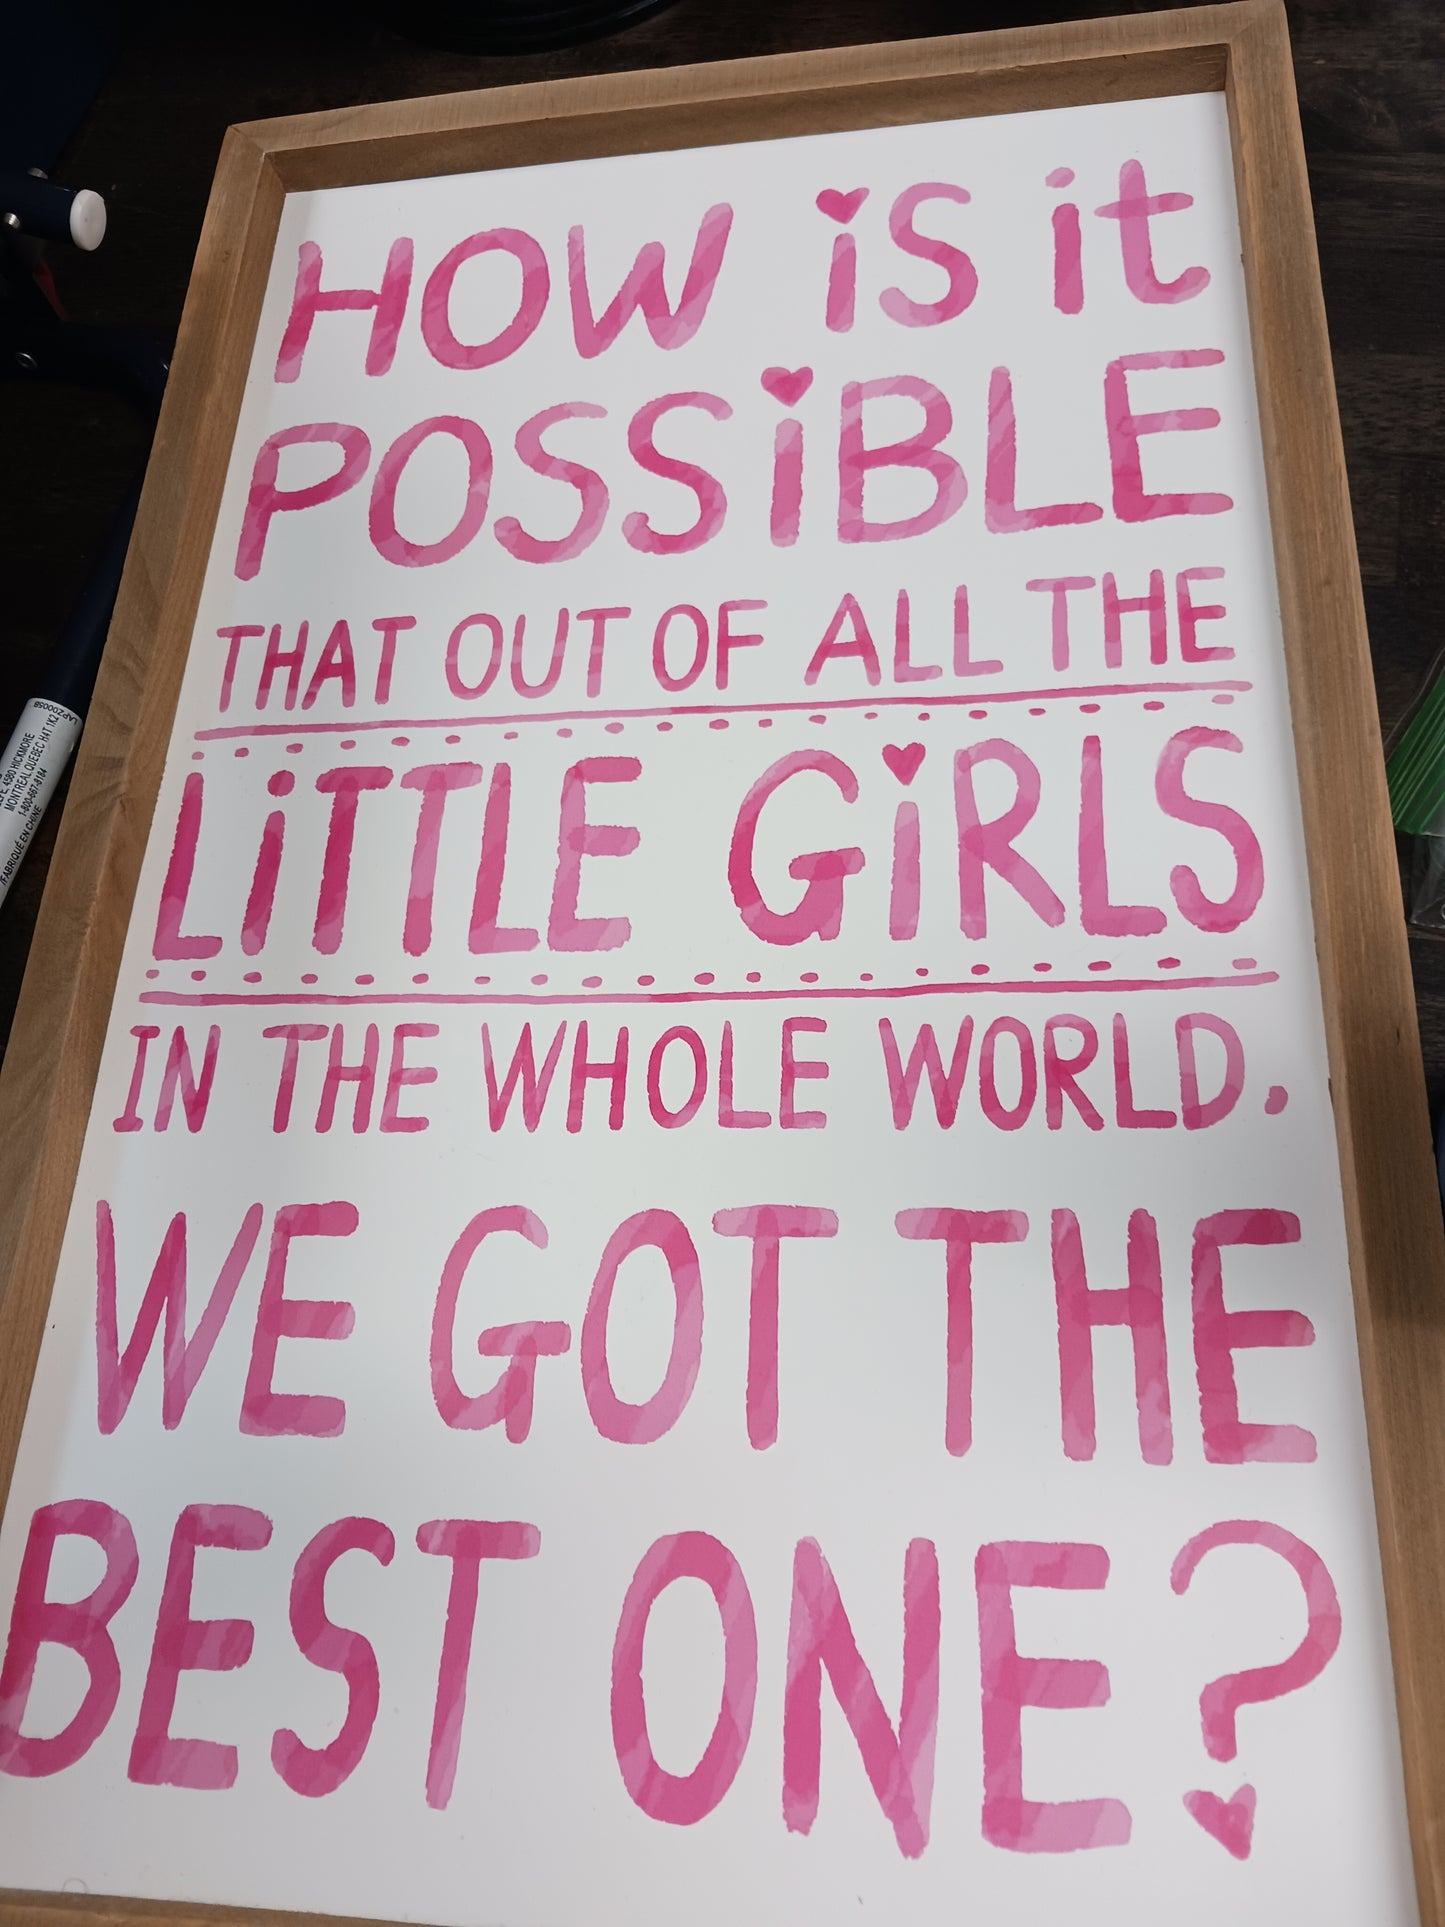 HOW iS it
POSSiBLE
THAT OUT OF ALL THE
LiTTLE GiRLS
IN THE WHOLE WORLD.
WE GOT THE
BEST ONE?
4580 HICKMORE
MONTREAL QUEBEC H4T 1K2
1-800-667-8184
/FABRIQUÉ EN CHINE